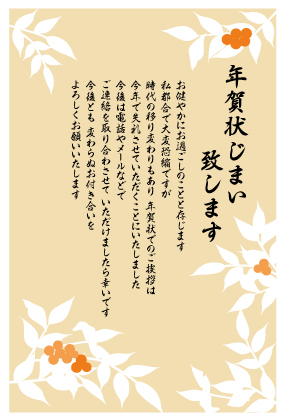 年賀状じまい
致します
お健やかにお過ごしのことと存じます
私都合で大変恐縮ですが
時代の移り変わりもあり 年賀状でのご挨拶は
今年で失礼させていただくことにいたしました
今後は電話やメールなどで
ご連絡を取り合わさせて いただけましたら幸いです
今後とも 変わらぬお付き合いを
よろしくお願いいたします